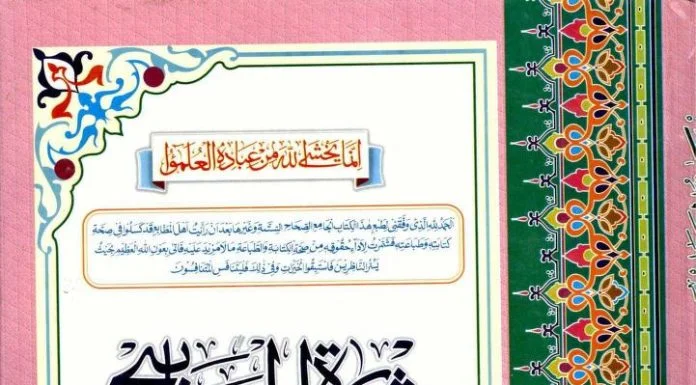 إنما يخشى الله من عباده العلمؤا
الحمد لله الذى وفقنى لطبع هذا الكتاب الجامع الصحاح الستة وغيرها بعد ان رأيت اهل المطابع قد كسلوا فى صحة
كتابته وطباعته فشمرت لاداء حقوقه من صحة الكتابة والطباعة مالا مزيد عليه فاتى بعون الله العظيم بحيث
يسر الناظرين فاستبقوا الخيرات وفى ذلك فليتنافس المتنافسون